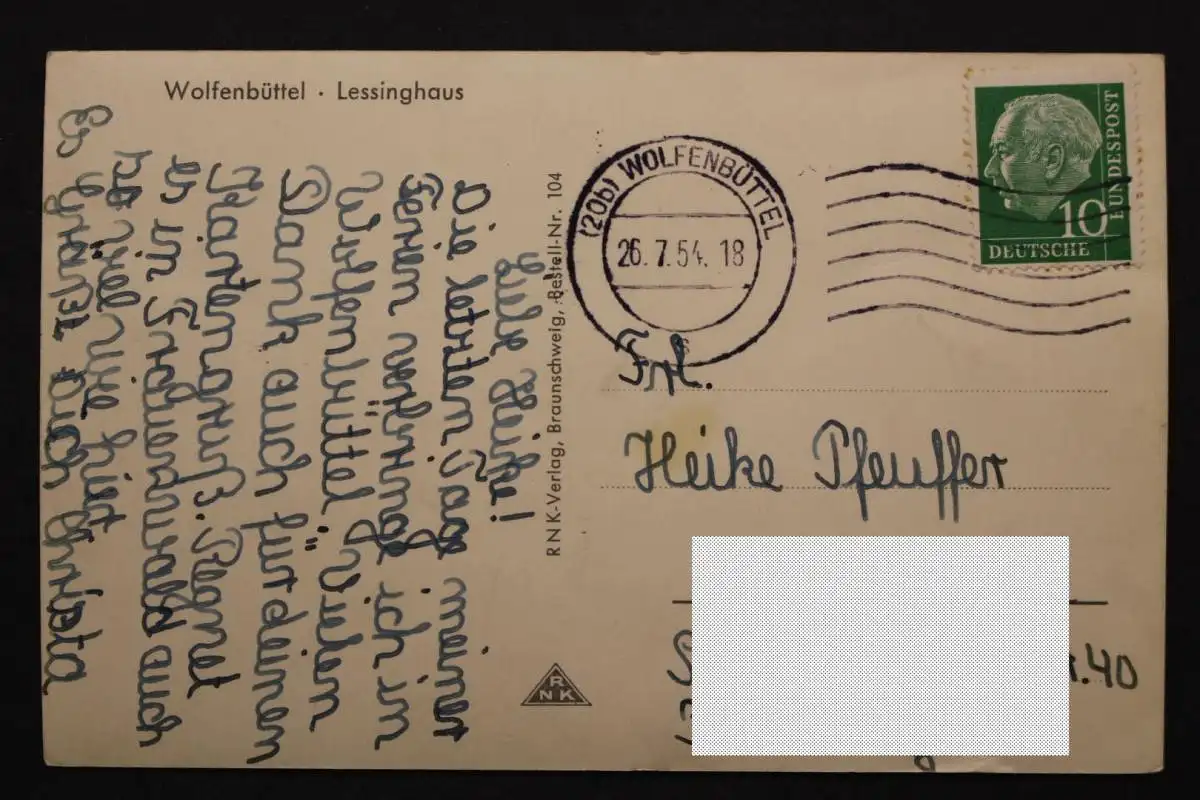 Wolfenbüttel · Lessinghaus
Liebe Heike!
Die letzten Tage meiner
Ferien verbringe ich in
Wolfenbüttel. Vielen
Dank auch für deinen
Kartengruß. Regnet
es in Frauenwald auch
so viel wie hier?
Es grüßt Dich Christa
RNK-Verlag, Braunschweig, Bestell-Nr. 104
RNK
(20b) WOLFENBÜTTEL
26.7.54. 18
10
DEUTSCHE
BUNDESPOST
Frl.
Heike Pfeuffer
40